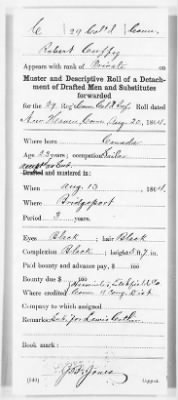 C | 29 Col'd | Conn.
Robert Cuffy
Appears with rank of Private on
Muster and Descriptive Roll of a Detachment
of Drafted Men and Substitutes
forwarded
for the 29 Reg't Conn. Col. Roll dated
New Haven Conn Aug 20, 1864.
Where born Canada
Age 22 years; occupation Sailor
Drafted and mustered in:
When Aug 13, 1864.
Where Bridgeport
Period 3 years.
Eyes Black; hair Black
Complexion Black; height 5 ft. 7 in.
Paid bounty and advance pay, $ 100
Bounty due $ 100
Where credited
Conn 4 Cong Dist
Company to which assigned
Remarks: Sub. for Lewis
Book mark:
Copyist.